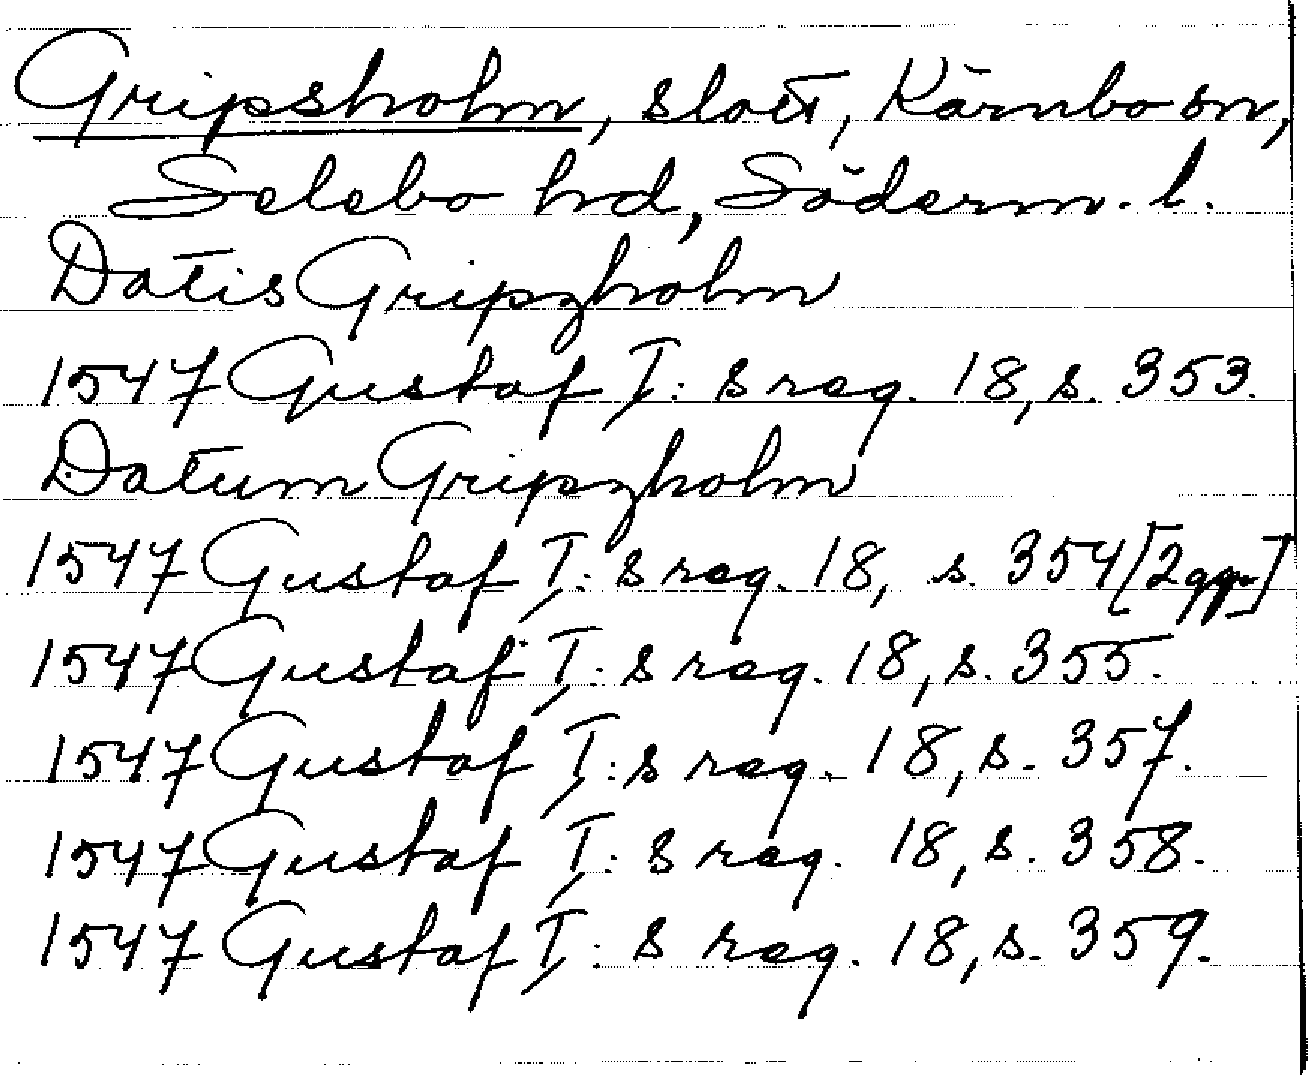 Gripsholm, slott, Kärnbo sn,
Selebo hd, Söderm. l.
Datis Gripzholm
1547 Gustaf I:s reg. 18, s. 353.
Datum Gripzholm
1547 Gustaf I:s reg. 18, s. 354 [2 ggr]
1547 Gustaf I:s reg. 18, s. 355.
1547 Gustaf I:s reg. 18, s. 357.
1547 Gustaf I:s reg. 18, s. 358.
1547 Gustaf I:s reg. 18, s. 359.